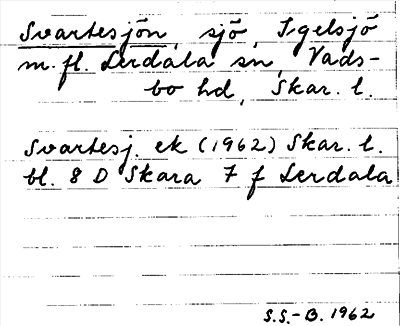 Svartesjön, sjö, Igelsjö
m.fl. Lerdala sn, Vads-
bo hd, Skar. l.
Svartesj. ek (1962) Skar. l.
bl. 8 D Skara 7 f Lerdala
S.S.-B. 1962